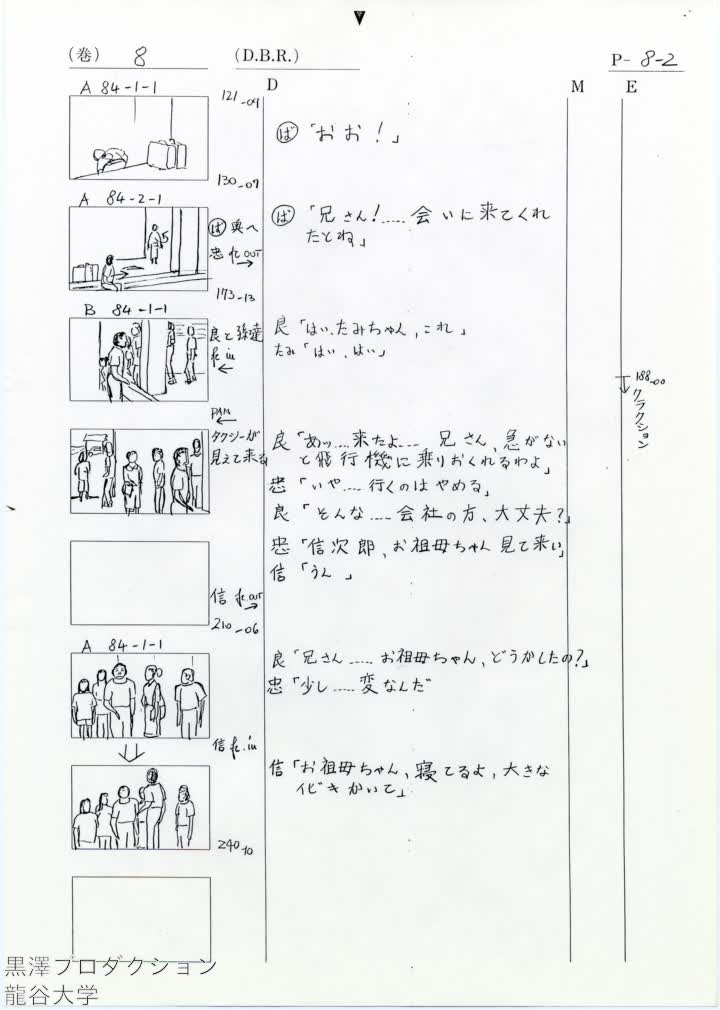 (巻) 8 (D.B.R.) P- 8-2
D M E
A 84-1-1
121-09
ば「おお!」
130-09
A 84-2-1
ば 奥へ
忠 fr OUT
ば「兄さん!.....会いに来てくれ
たとね」
173-13
B 84-1-1
良と孫達
fr in
良「はい、たみちゃん、これ」
たみ「はい、はい」
188-00
クラクション
PAN
タクシーが
見えて来る
良「あッ....来たよ.... 兄さん、急がない
と飛行機に乗りおくれるわよ」
忠「いや.... 行くのはやめる」
良「そんな.....会社の方、大丈夫?」
忠「信次郎、お祖母ちゃん見て来い」
信「うん」
信 fr.OUT
210-06
A 84-1-1
良「兄さん.....お祖母ちゃん、どうかしたの?」
忠「少し.....変なんだ」
信 fr.in
信「お祖母ちゃん、寝てるよ、大きな
イビキかいて」
240-10
黒澤プロダクション
龍谷大学